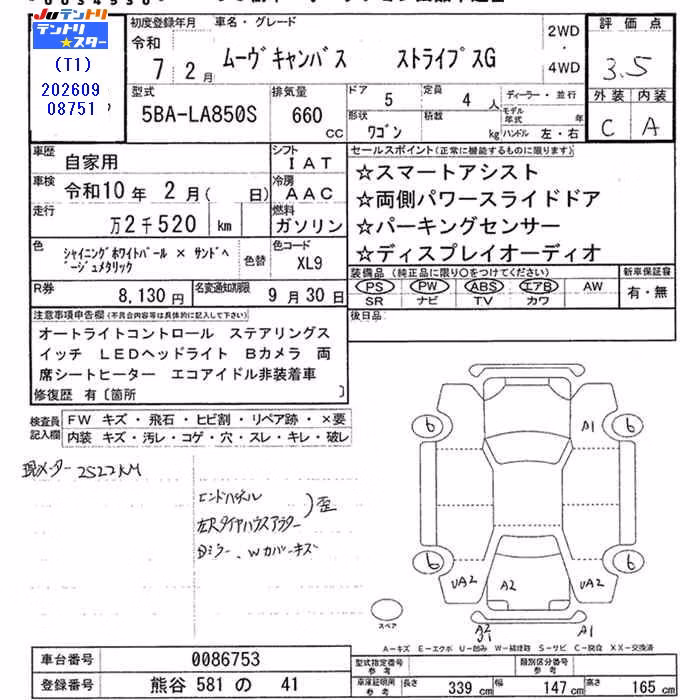 Juテントリ
テントリ
★スター
(T1)
202609
08751
初度登録年月
車名・グレード
令和
7 2月
ムーヴキャンバス ストライプスG
2WD
・
4WD
評価点
3.5
外装 内装
C A
型式
5BA-LA850S
排気量
660
CC
ドア
5
定員
4 人
ディーラー・並行
形状
ワゴン
積載
kg
モデル年式 年
ハンドル 左・右
車歴
自家用
シフト
IAT
車検
令和10年 2月( 日)
冷房
AAC
走行
万2千520 km
燃料
ガソリン
セールスポイント(正常に機能するものに限ります)
☆スマートアシスト
☆両側パワースライドドア
☆パーキングセンサー
☆ディスプレイオーディオ
色
シャイニングホワイトパール × サンドベ
ージュメタリック
色替
色コード
XL9
R券
8,130円
名変通知期限
9月30日
装備品(純正品に限り○をつけてください)
新車保証書
PS PW ABS エアB AW
SR ナビ TV カワ
有・無
後日品
注意事項申告欄(不具合内容等は具体的に記入して下さい)
オートライトコントロール ステアリングス
イッチ LEDヘッドライト Bカメラ 両
席シートヒーター エコアイドル非装着車
修復歴 有〔箇所 〕
検査員
記入欄
FW キズ・飛石・ヒビ割・リペア跡・×要
内装 キズ・汚レ・コゲ・穴・スレ・キレ・破レ
現メーター2522KM
エンドパネル
左Rタイヤハウスアウター
)歪
Dミラー、Wカバーキズ
6 A1 6
6 6
UA2 A2 UA2
A2
A1
スペア
A−キズ E−エクボ U−凹み W−補修跡 S−サビ C−腐食 XX−交換済
車台番号
0086753
型式指定番号
参考
類別区分番号
参考
登録番号
熊谷 581 の 41
車庫証明用
参考
長さ 339 cm
幅 147 cm
高さ 165 cm